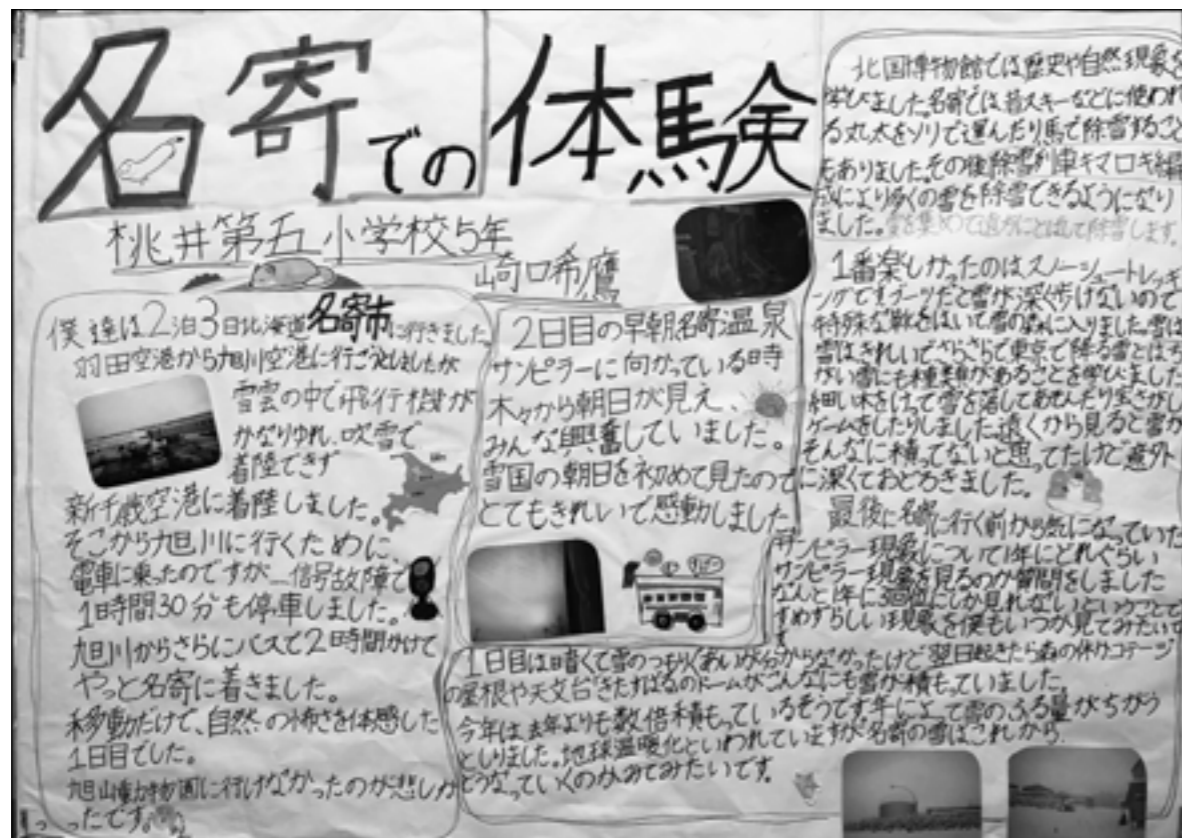 名寄での体験
桃井第五小学校5年
崎口希鷹
僕達は2泊3日北海道名寄市に行きました。
羽田空港から旭川空港に行こうとしましたが
雪雲の中で飛行機が
かなりゆれ、吹雪で
着陸できず
新千歳空港に着陸しました。
そこから旭川に行くために、
電車に乗ったのですが、信号故障で
1時間30分も停車しました。
旭川からさらにバスで2時間かけて
やっと名寄に着きました。
移動だけで、自然の怖さを体感した
1日目でした。
旭山動物園に行けなかったのが悲しか
ったです。
2日目の早朝、名寄温泉
サンピラーに向かっている時
木々から朝日が見え、
みんな興奮していました。
雪国の朝日を初めて見たので
とてもきれいで感動しました。
1日目は暗くて雪のつもりぐあいが分からなかったけど翌日起きたら森の休暇コテージ
の屋根や天文台きたすばるのドームがこんなにも雪が積もっていました。
今年は去年よりも数倍積もっているそうです年によって雪のふる量がちがう
としりました。地球温暖化といわれていますが名寄の雪はこれから
どうなっていくのかみてみたいです。
北国博物館では歴史や自然現象を
学びました。名寄では、昔スキーなどに使われ
る丸太をソリで運んだり馬で除雪すること
もありました。その後除雪列車キマロキ編
成により多くの雪を除雪できるようになり
ました。雪を集めて遠くにとばして除雪します。
1番楽しかったのはスノーシュートレッキ
ングですブーツだと雪が深く歩けないので
特殊な靴をはいて雪の森に入りました。雪は
雪はきれいでさらさらで東京で降る雪とはち
がい雪にも種類があることを学びました
細い木をけって雪を落してあそんだり宝さがし
ゲームをしたりしました。遠くから見ると雪が
そんなに積ってないと思ってたけど意外
に深くておどろきました。
最後に名寄に行く前から気になっていた
サンピラー現象について1年にどれぐらい
サンピラー現象を見るのか質問をしました
なんと1年に3回にしか見れないということで
すめずらしい現象を僕もいつか見てみたいで
す